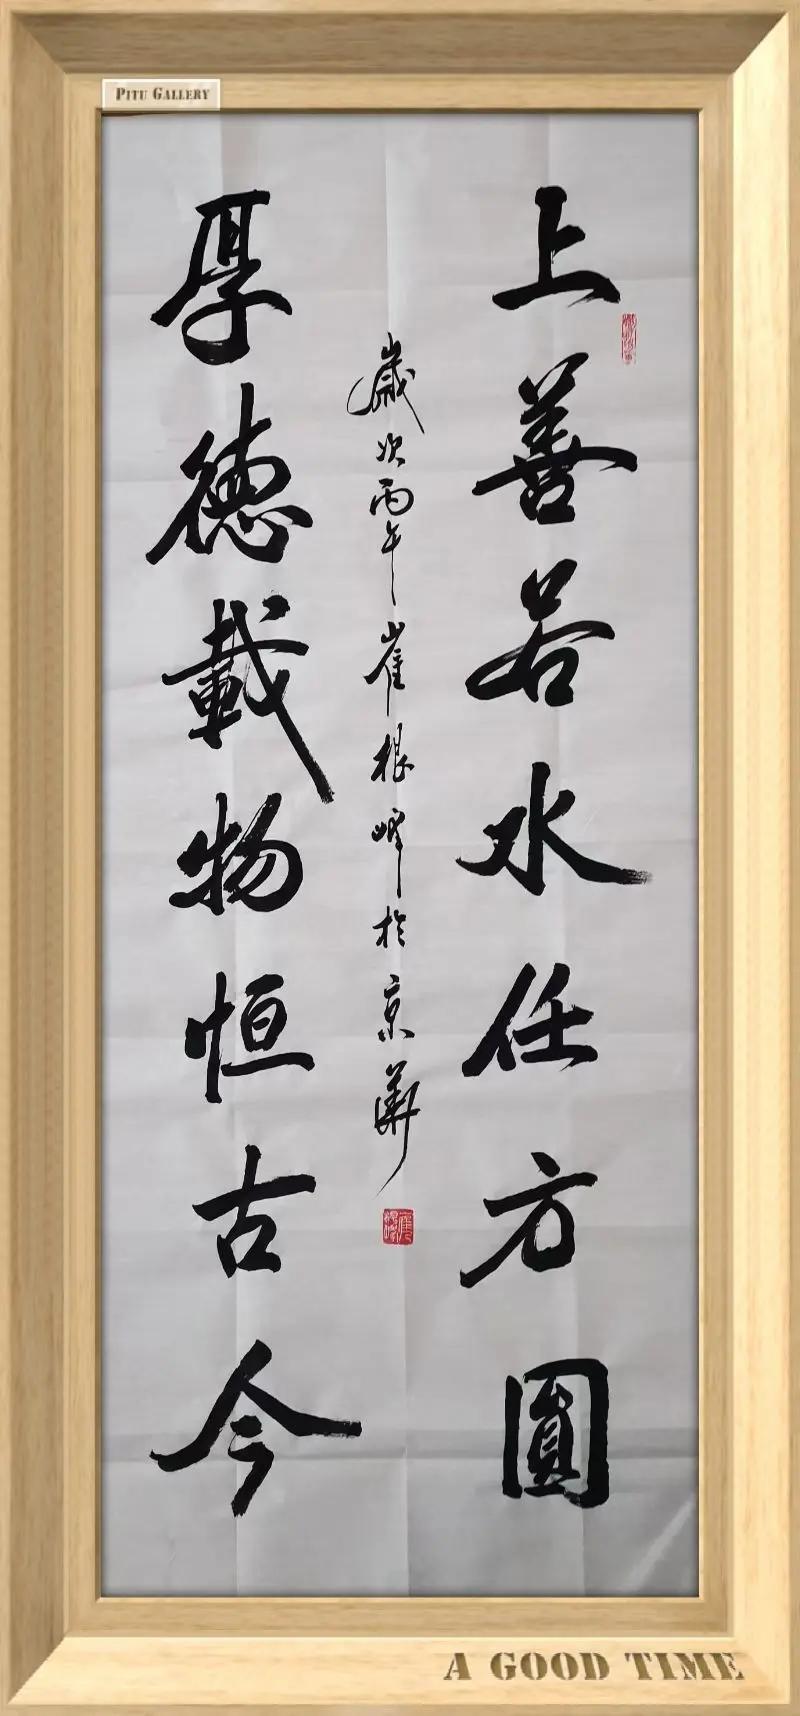 PITU GALLERY
上善若水任方圓
厚德載物恒古今
歲次丙午崔根峰於京華
A GOOD TIME